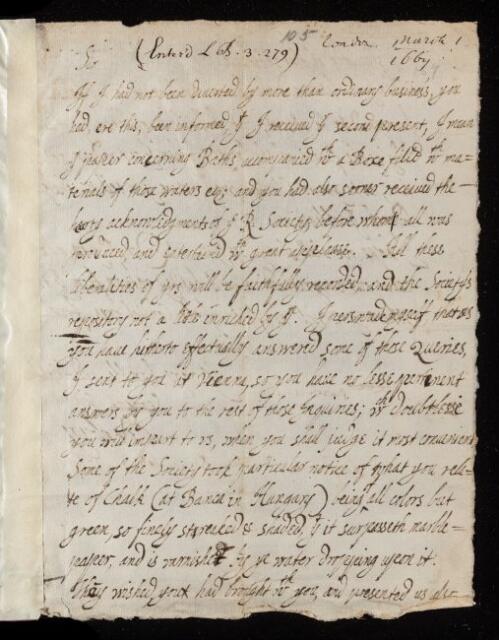 105
London March 1
Sr (Enterd L.B. 3. 279) 1669
If I had not been diverted by more than ordinary business, you
had, ere this, been informed, yt I received yr second present, I mean
yr paper concerning Baths, accompanied wth a Boxe filld wth ma=
terials of those waters etc. and you had also sooner received the
hearty acknowledgments of ye R. Society, before whom all was
produced, and entertaind wth great applause. All these
liberalities of yrs will be faithfully recorded, and the Society's
repository not a little enriched by ym. I persuade myself that as
you have hitherto effectually answered some of those Queries,
I sent to you at Vienna, so you have no lesse pertinent
answers by you to the rest of those Inquiries; wch doubtlesse
you will impart to us, when you shall judge it most convenient
Some of the Society took particular notice of what you rela=
te of Chalk (at Banca in Hungary) being all colors but
green, so finely streaked & shaded, yt it surpasseth marble=
paper, and is varnished by ye water dropping upon it:
They wished, you had brought wth you, and presented us also